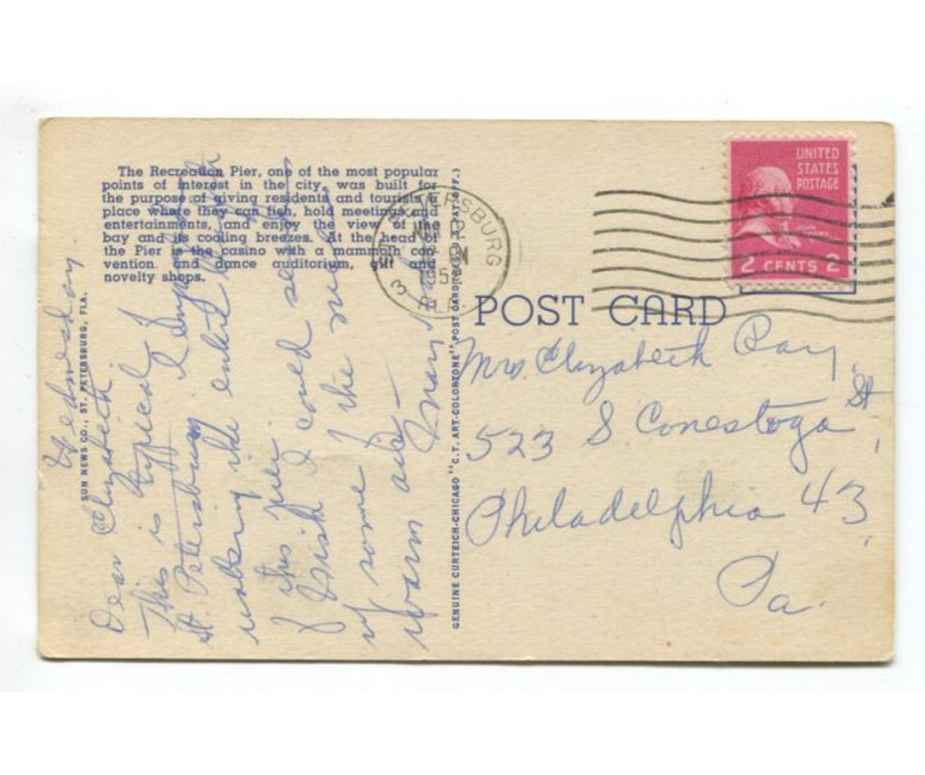 The Recreation Pier, one of the most popular
points of interest in the city, was built for
the purpose of giving residents and tourists a
place where they can fish, hold meetings and
entertainments, and enjoy the view of the
bay and its cooling breezes. At the head of
the Pier is the casino with a mammoth con-
vention and dance auditorium, gift and
novelty shops.
SUN NEWS CO., ST. PETERSBURG, FLA.
Wednesday
Dear Elizabeth
This is typical of
St. Petersburg I
the entire
of this pier
I wish I could send
you some of the nice
warm air -
Mary
GENUINE CURTEICH-CHICAGO "C. T. ART-COLORTONE" POST CARD
PETERSBURG
3
FLA.
UNITED
STATES
POSTAGE
2 CENTS 2
POST CARD
Mrs. Elizabeth Ray
523 S Conestoga St,
Philadelphia 43
Pa.